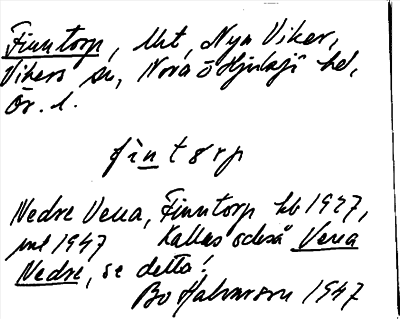 Finntorp, lht, Nya Viker,
Vikers sn, Nora o Hjulsjö hd,
Ör. l.
fìntórp
Nedre Vena, Finntorp hb 1927,
1947 Kallas också Vena
Nedre, se detta!
Bo Halvarson 1947